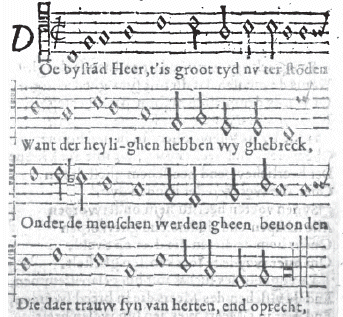 DOe bystãd Heer, t'is groot tyd nv ter stõden
Want der heyli-ghen hebben wy ghebreck,
Onder de menschen werden gheen, beuonden
Die daer trauw syn van herten, end oprecht,